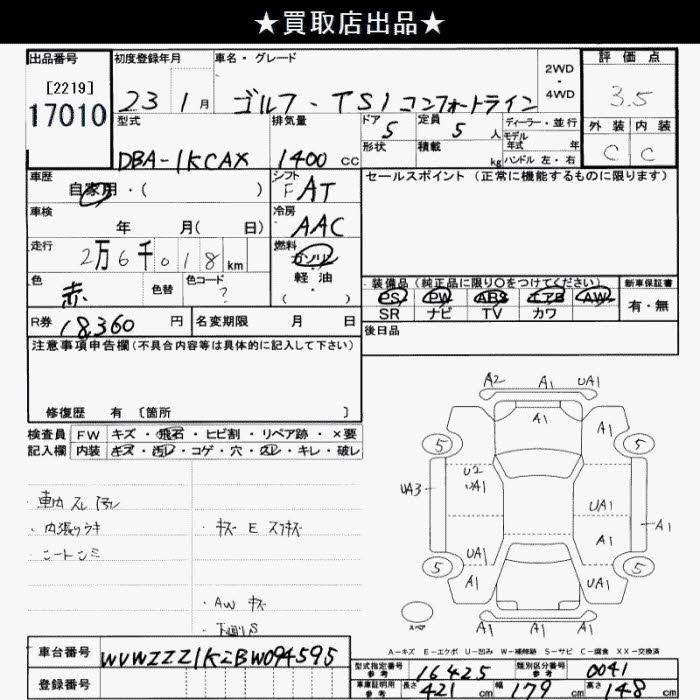 ★買取店出品★
出品番号
[2219]
17010
初度登録年月
23 1月
車名・グレード
ゴルフ - TSI コンフォートライン
2WD
・
4WD
評価点
3.5
型式
DBA-1KCAX
排気量
1400 cc
ドア 5
形状
定員 5 人
積載 kg
ディーラー・並行
モデル年式 年
ハンドル 左・右
外装 内装
C C
車歴
自家用・( )
シフト
F AT
セールスポイント (正常に機能するものに限ります)
車検
年 月( 日)
冷房
AAC
走行
2万6千018 km
燃料
ガソリン
軽油
( ・ )
色
赤
色替
色コード
?
装備品 (純正品に限り○をつけてください)
新車保証書
PS PW ABS エアB AW
有・無
SR ナビ TV カワ
R券 18,360 円
名変期限 月 日
後日品
注意事項申告欄(不具合内容等は具体的に記入して下さい)
修復歴 有 〔箇所 〕
検査員 FW キズ・飛石・ヒビ割・リペア跡・×要
記入欄 内装 キズ・汚レ・コゲ・穴・スレ・キレ・破レ
・車内 スレ 汚レ
・内張りウキ
・シートシミ
・キズ E スリキズ
・AW キズ
・下廻りS
A2 A1 UA1
A1 A1
5 5
UA3 U2
UA1 UA1
A1 A1
UA1
5 5
A1 UA1
UA1 A1 A1
スペア
A－キズ E－エクボ U－凹み W－補修跡 S－サビ C－腐食 XX－交換済
車台番号 WVWZZZ1KZBW094595
登録番号
型式指定番号 参考 16425 類別区分番号 参考 0041
車庫証明用 参考 長さ 421 cm 幅 179 cm 高さ 148 cm